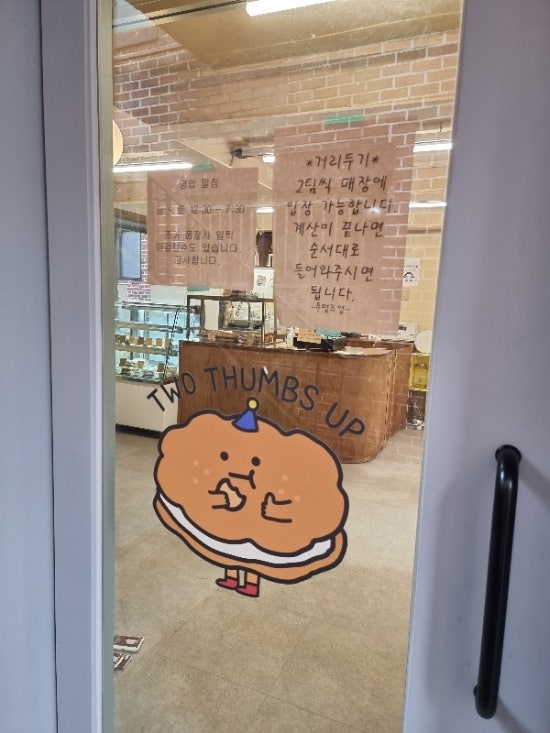 영업 일정
12:30 - 7:30
조기 품절시 일찍
수도 있습니다.
감사합니다.
*거리두기*
2팀씩 매장에
입장 가능합니다.
계산이 끝나면
순서대로
들어와주시면
됩니다.
-투썸즈업-
TWO THUMBS UP